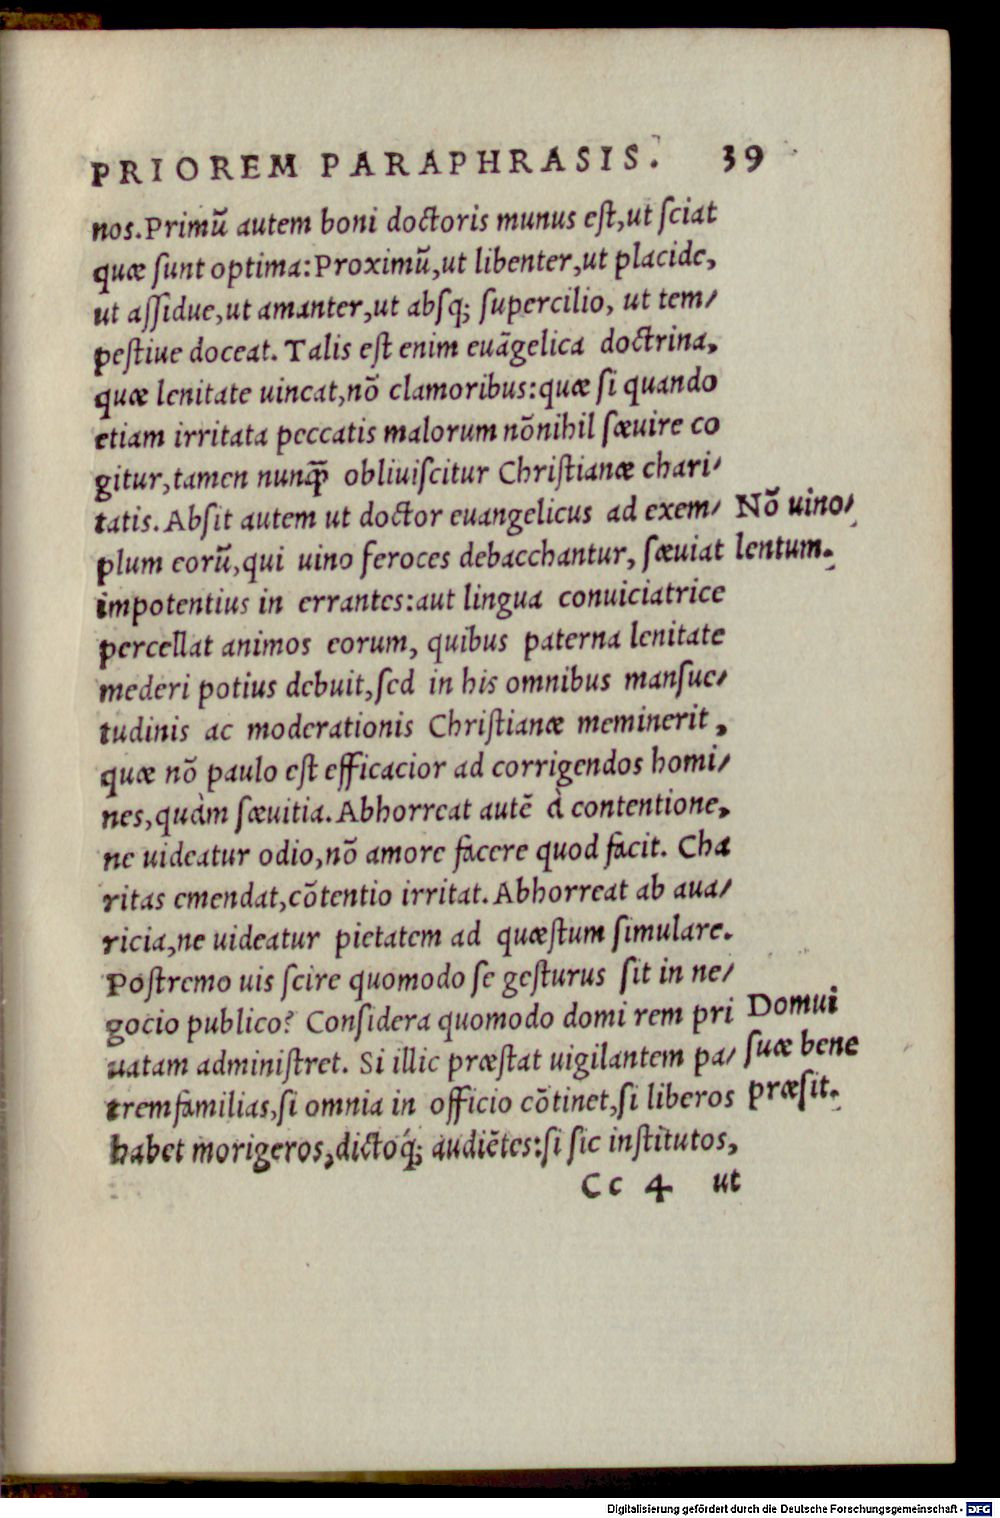 PRIOREM PARAPHRASIS. 39
nos. Primũ autem boni doctoris munus est, ut sciat
quæ sunt optima: Proximũ, ut libenter, ut placide,
ut assidue, ut amanter, ut absq; supercilio, ut tem/
pestiue doceat. Talis est enim euãgelica doctrina,
quæ lenitate uincat, nõ clamoribus: quæ si quando
etiam irritata peccatis malorum nõnihil sæuire co
gitur, tamen nunq̃ obliuiscitur Christianæ chari/
tatis. Absit autem ut doctor euangelicus ad exem/
plum eorũ, qui uino feroces debacchantur, sæuiat
impotentius in errantes: aut lingua conuiciatrice
percellat animos eorum, quibus paterna lenitate
mederi potius debuit, sed in his omnibus mansue/
tudinis ac moderationis Christianæ meminerit,
quæ nõ paulo est efficacior ad corrigendos homi/
nes, quàm sæuitia. Abhorreat autẽ à contentione,
ne uideatur odio, nõ amore facere quod facit. Cha
ritas emendat, cõtentio irritat. Abhorreat ab aua/
ricia, ne uideatur pietatem ad quæstum simulare.
Postremo uis scire quomodo se gesturus sit in ne/
gocio publico? Considera quomodo domi rem pri
uatam administret. Si illic præstat uigilantem pa/
tremfamilias, si omnia in officio cõtinet, si liberos
habet morigeros, dictóq; audiẽtes: si sic institutos,
Cc 4 ut
Nõ uino/
lentum.
Domui
suæ bene
præsit.
Digitalisierung gefördert durch die Deutsche Forschungsgemeinschaft - DFG